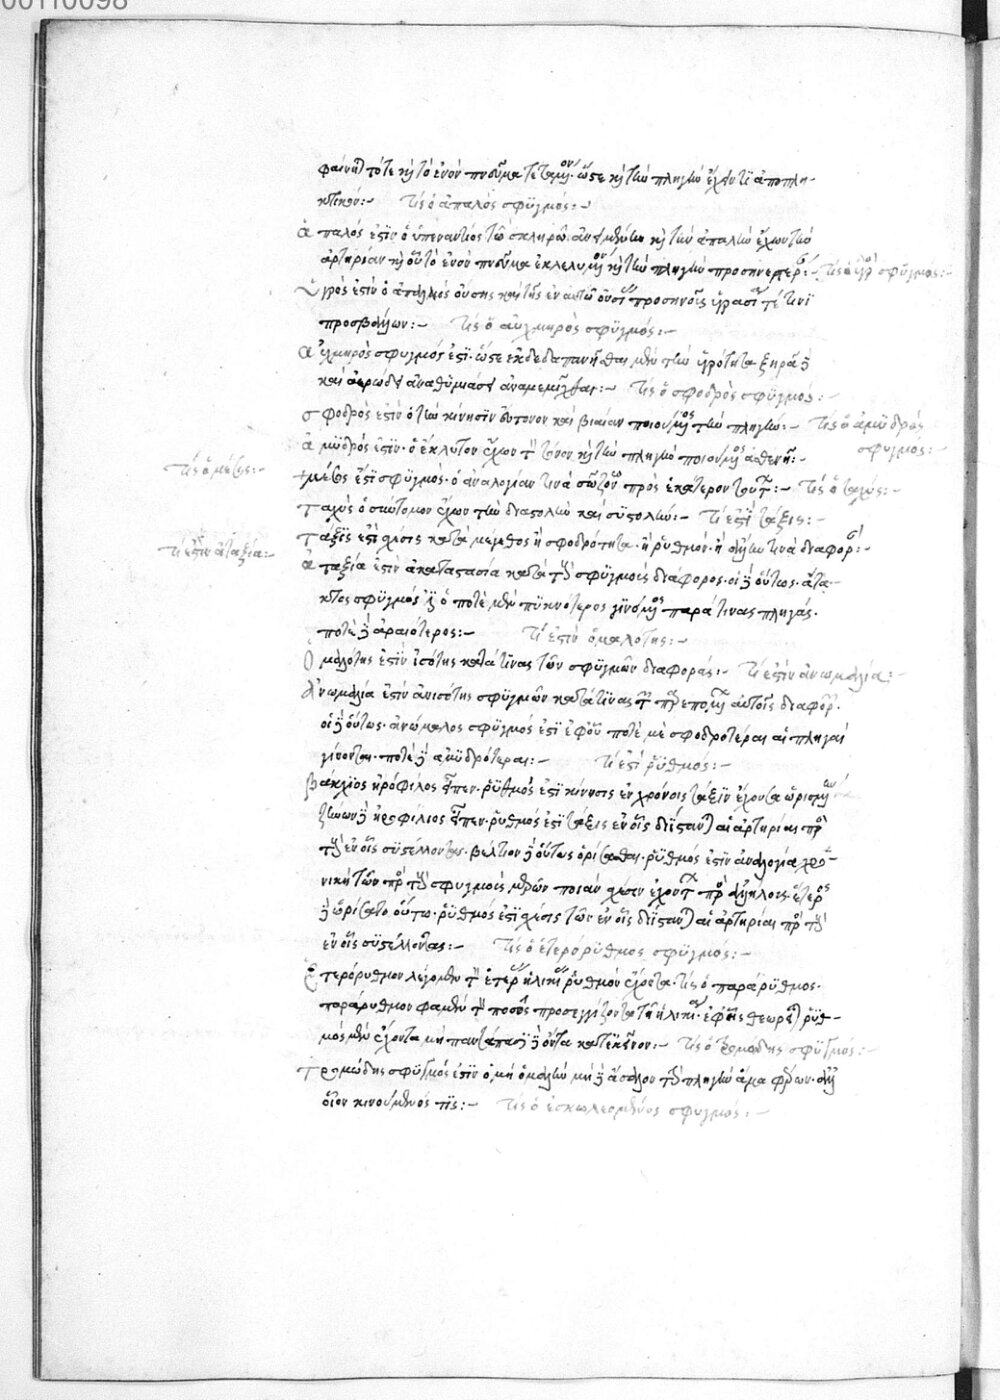 00110098
φαίνηται τότε καὶ τὸ ἐνὸν πνεῦμα τεταμένον· ὥστε καὶ τὴν πληγὴν ἔχειν τι ἀποπλη-
κτικόν:- τίς ὁ ἁπαλὸς σφυγμός:-
ἁπαλός ἐστιν ὁ ὑπεναντίος τῷ σκληρῷ καὶ τὴν ἁπαλὴν ἔχων τὴν
ἀρτηρίαν καὶ αὐτὸ ἐνὸν πνεῦμα ἐκλελυμένον καὶ τὴν πληγὴν προσηνεστέραν:- τίς ὁ ὑγρὸς σφυγμός:-
ὑγρός ἐστιν ὁ προσηνοῦς ὑγρασίας τέ τινι
προσβάλλων:- τίς ὁ αὐχμηρὸς σφυγμός:-
αὐχμηρὸς σφυγμός ἐστι· ὥστε ἐκδεδαπανῆσθαι μὲν τὴν ὑγρότητα ξηρᾷ δὲ
καὶ ἀερώδει ἀναθυμιάσει ἀναμεμίχθαι:- τίς ὁ σφοδρὸς σφυγμός:-
σφοδρός ἐστιν ὁ τὴν κίνησιν εὔτονον καὶ βιαίαν ποιούμενος τὴν πληγήν:- τίς ὁ ἀμυδρὸς
σφυγμός:-
ἀμυδρός ἐστιν· ὁ ἔκλυτον ἔχων τὸν τόνον καὶ τὴν πληγὴν ποιούμενος ἀσθενῆ:-
τίς ὁ μέσος:-
μέσος ἐστὶ σφυγμὸς· ὁ ἀναλογίαν τινὰ σώζων πρὸς ἑκάτερον τούτων:- τίς ὁ ταχύς:-
ταχὺς ὁ σύντομον ἔχων τὴν διαστολὴν καὶ συστολήν:- τί ἐστι τάξις:-
τάξις ἐστὶ σχέσις κατὰ μέγεθος ἢ σφοδρότητα· ἢ ῥυθμόν· ἢ ἄλλην τινὰ διαφοράν:-
τί ἐστιν ἀταξία:-
ἀταξία ἐστὶν ἀκαταστασία κατὰ τοὺς σφυγμοὺς διάφορος· οἷον οὕτως· ἄτα-
κτος σφυγμός ἐστι ὁ ποτὲ μὲν πυκνότερος γινόμενος παρά τινας πληγάς·
ποτὲ δὲ ἀραιότερος:- τί ἐστὶν ὁμαλότης:-
ὁμαλότης ἐστὶν ἰσότης κατά τινας τῶν σφυγμῶν διαφοράς:- τί ἐστὶν ἀνωμαλία:-
ἀνωμαλία ἐστὶν ἀνισότης σφυγμῶν κατά τινας τῶν παρεπομένων αὐτοῖς διαφορῶν·
οἷον οὕτως· ἀνώμαλος σφυγμός ἐστι ἐφ' οὗ ποτὲ μὲν σφοδρότεραι αἱ πληγαὶ
γίνονται· ποτὲ δὲ ἀμυδρότεραι:- τί ἐστι ῥυθμός:-
βακχεῖος ἡρόφιλος εἶπεν· ῥυθμός ἐστι κίνησις ἐν χρόνοις τάξιν ἔχουσα ὡρισμένην
ζήνων δὲ ἡροφίλειος εἶπεν· ῥυθμός ἐστι τάξις ἐν οἷς διΐστανται αἱ ἀρτηρίαι πρὸς
τοὺς ἐν οἷς συστέλλονται· βέλτιον δὲ οὕτως ὁρίσασθαι· ῥυθμός ἐστιν ἀναλογία χρο-
νικὴ τῶν πρὸς τοὺς σφυγμοὺς μερῶν ποιὰν σχέσιν ἐχόντων πρὸς ἀλλήλους· ἕτερος
δὲ ὡρίσατο οὕτω· ῥυθμός ἐστι σχέσις τῶν ἐν οἷς διΐστανται αἱ ἀρτηρίαι πρὸς τοὺς
ἐν οἷς συστέλλονται:- τίς ὁ ἑτερόρυθμος σφυγμός:-
ἑτερόρυθμον λέγομεν τὸν ἑτέρας ἡλικίας ῥυθμὸν ἔχοντα· τίς ὁ παράρυθμος·
παράρυθμον φαμὲν τὸν ποσῶς προσεγγίζοντα τῇ ἡλικίᾳ· ἐφ' ἧς θεωρεῖται ῥυθ-
μὸν μὲν ἔχοντα μὴ παντάπασι δὲ ὄντα κατ' ἐκεῖνον:- τίς ὁ τρομώδης σφυγμός:-
τρομώδης σφυγμός ἐστιν ὁ μὴ ὁμαλὴν μὴ δὲ ἄσαλον τὴν πληγὴν ἅμα φέρων· ἀλλ'
οἷον κινούμενός τις:- τίς ὁ ἐσκωλεομένος σφυγμός:-